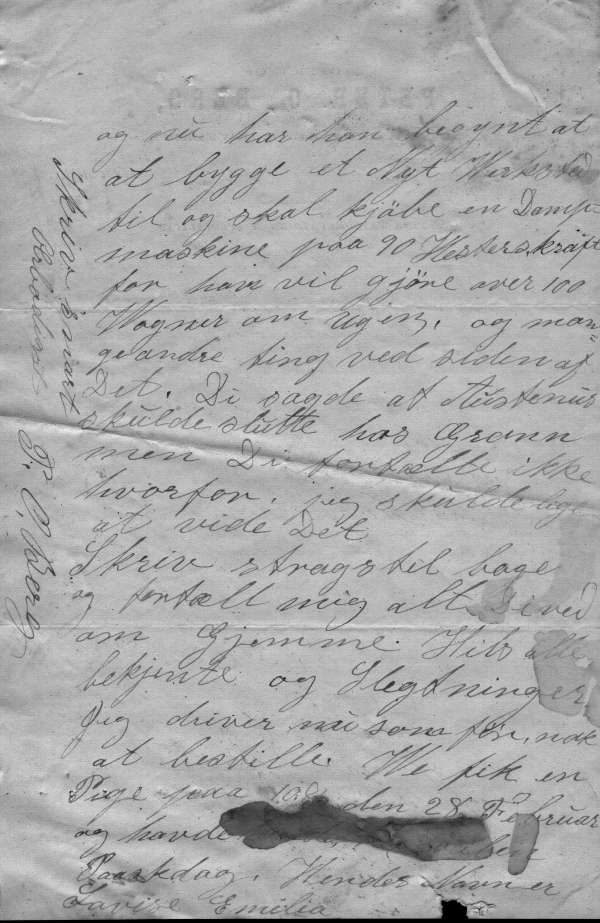 og nu har han begynt at
at bygge et Nyt Werksted
til og skal kjöbe en Damp=
maskine paa 90 Hesterskraft
for han vil gjöre over 100
Wogner om ugen, og man=
ge andre ting ved siden af
Det. Di sagde at Austenius
skulde slutte hos Grönn
men Di fortælte ikke
hvorfor. jeg skulde lige
at vide Det
Skriv strags til bage
og fortæll mig alt Di ved
om Hjemme. Hils alle
bekjente og Slegtninger
Jeg driver nu som för, nok
at bestille. We fik en
Pige paa den 28 Februar
og havde
Paaskdag. Hendes Navn er
Lovise Emilia
Skriv snart
Arbödigst
P. O. Berg
PETER O. BERG,